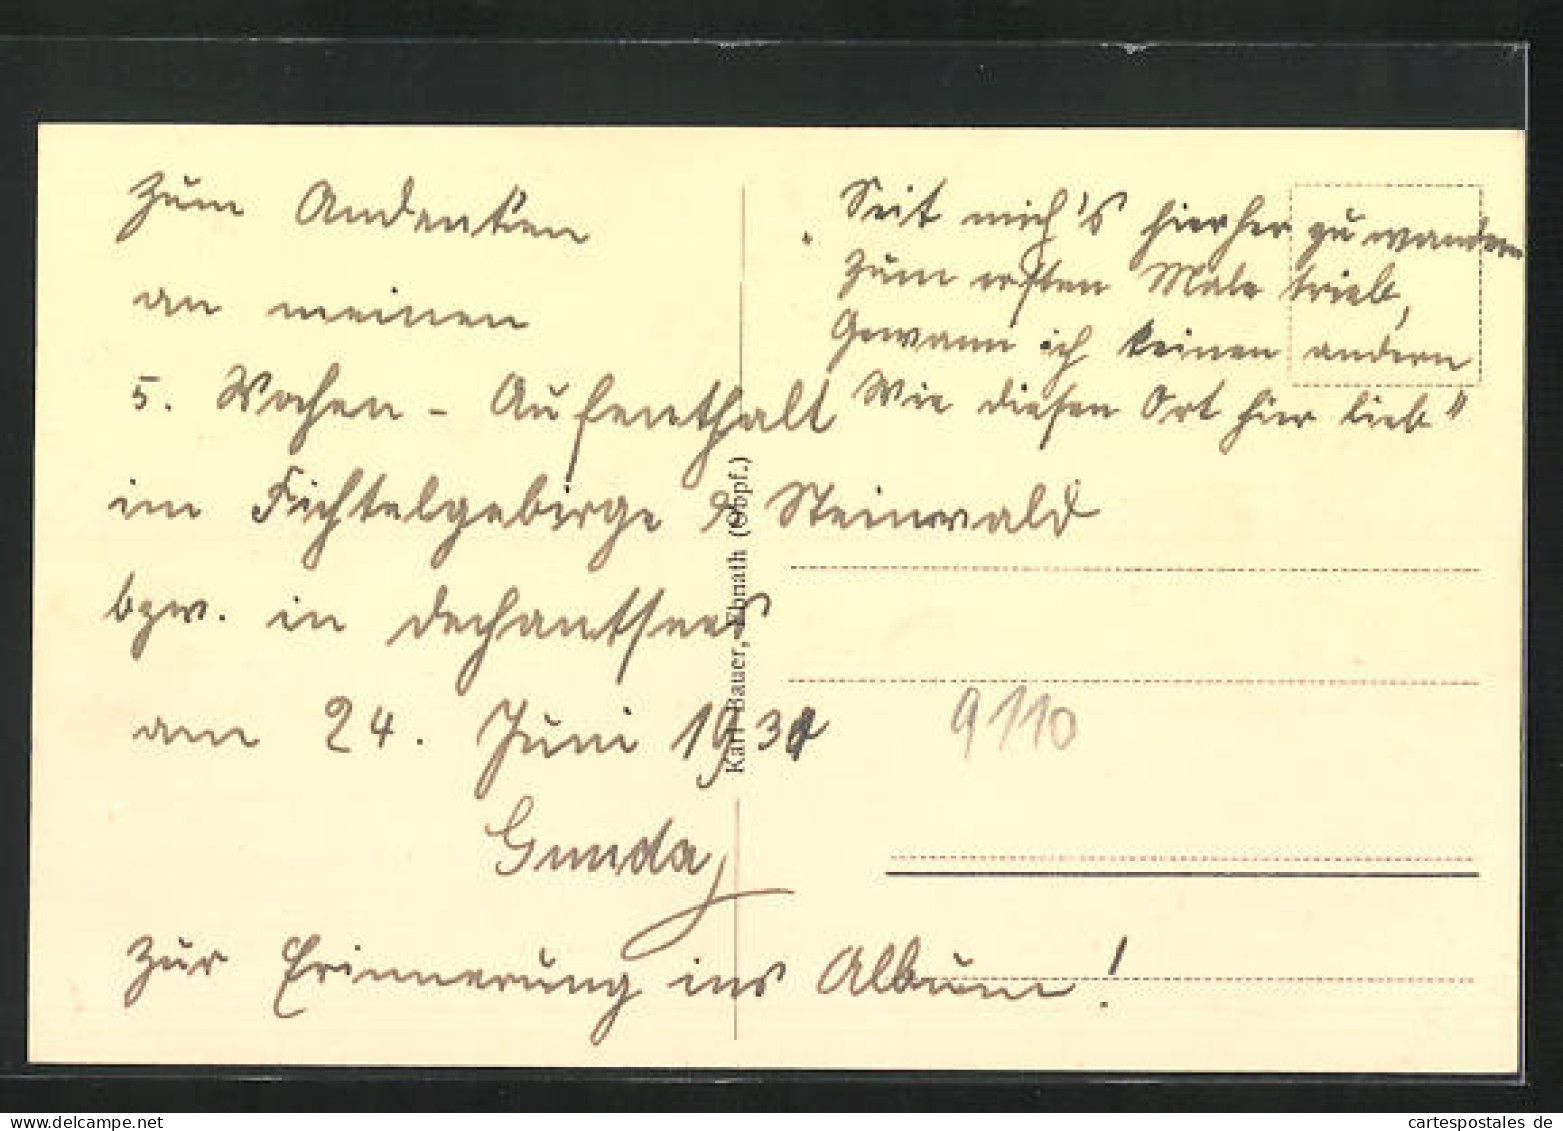 Zum Andenken
an meinen
5. Wochen - Aufenthalt
im Fichtelgebirge & Steinwald
bzw. in Dechantsees
am 24. Juni 1931
Gunda
Zur Erinnerung ins Album!
„Seit mich's hierher zu wandern
Zum ersten Male trieb,
Gewann ich keinen andern
Wie diesen Ort hier lieb"
Karl Bauer, Ebnath (Obpf.)
9110
cartespostales de